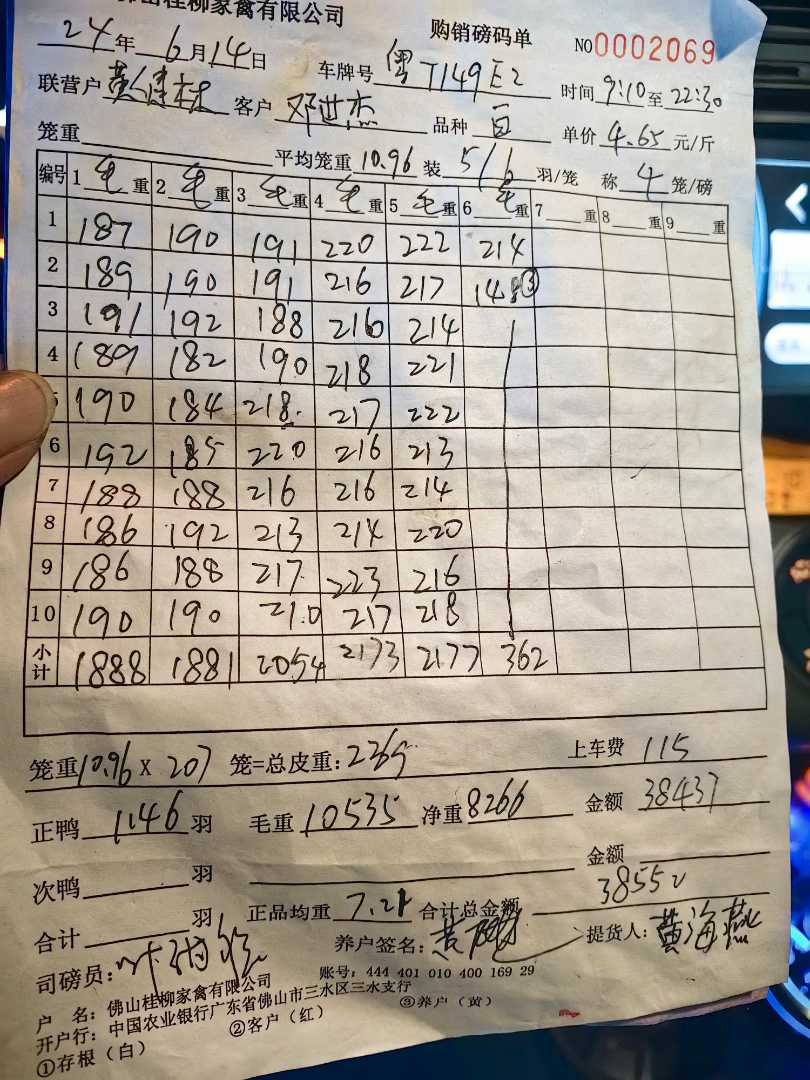 佛山桂柳家禽有限公司 购销磅码单 NO0002069
24年6月14日 车牌号 粤T149E2 时间 9:10至22:30
联营户 客户 邓世杰 品种 白 单价 4.65 元/斤
笼重 平均笼重 10.96 装 5/6 羽/笼 称 4 笼/磅
编号 1毛重 2毛重 3毛重 4毛重 5毛重 6毛重 7 重 8 重 9 重
1 187 190 191 220 222 214
2 189 190 191 216 217 148③
3 191 192 188 216 214
4 189 182 190 218 221
5 190 184 218. 217 222
6 192 185 220 216 213
7 188 188 216 216 214
8 186 192 213 214 220
9 186 188 217 223 216
10 190 190 210 217 218
小计 1888 1881 2054 2173 2177 362
笼重10.96 X 207 笼=总皮重: 2269 上车费 115
正鸭 1146 羽 毛重 10535 净重 8266 金额 38437
次鸭 羽 金额
合计 羽 正品均重 7.21 合计总金额 38552
司磅员: 养户签名: 提货人: 黄海燕
户 名: 佛山桂柳家禽有限公司 账号: 444 401 010 400 169 29
开户行: 中国农业银行广东省佛山市三水区三水支行
①存根(白) ②客户(红) ③养户(黄)